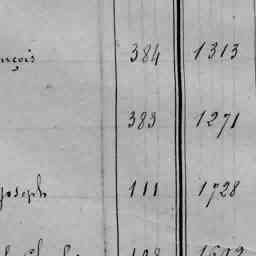 nçois 384 1313
383 1271
Joseph 111 1728